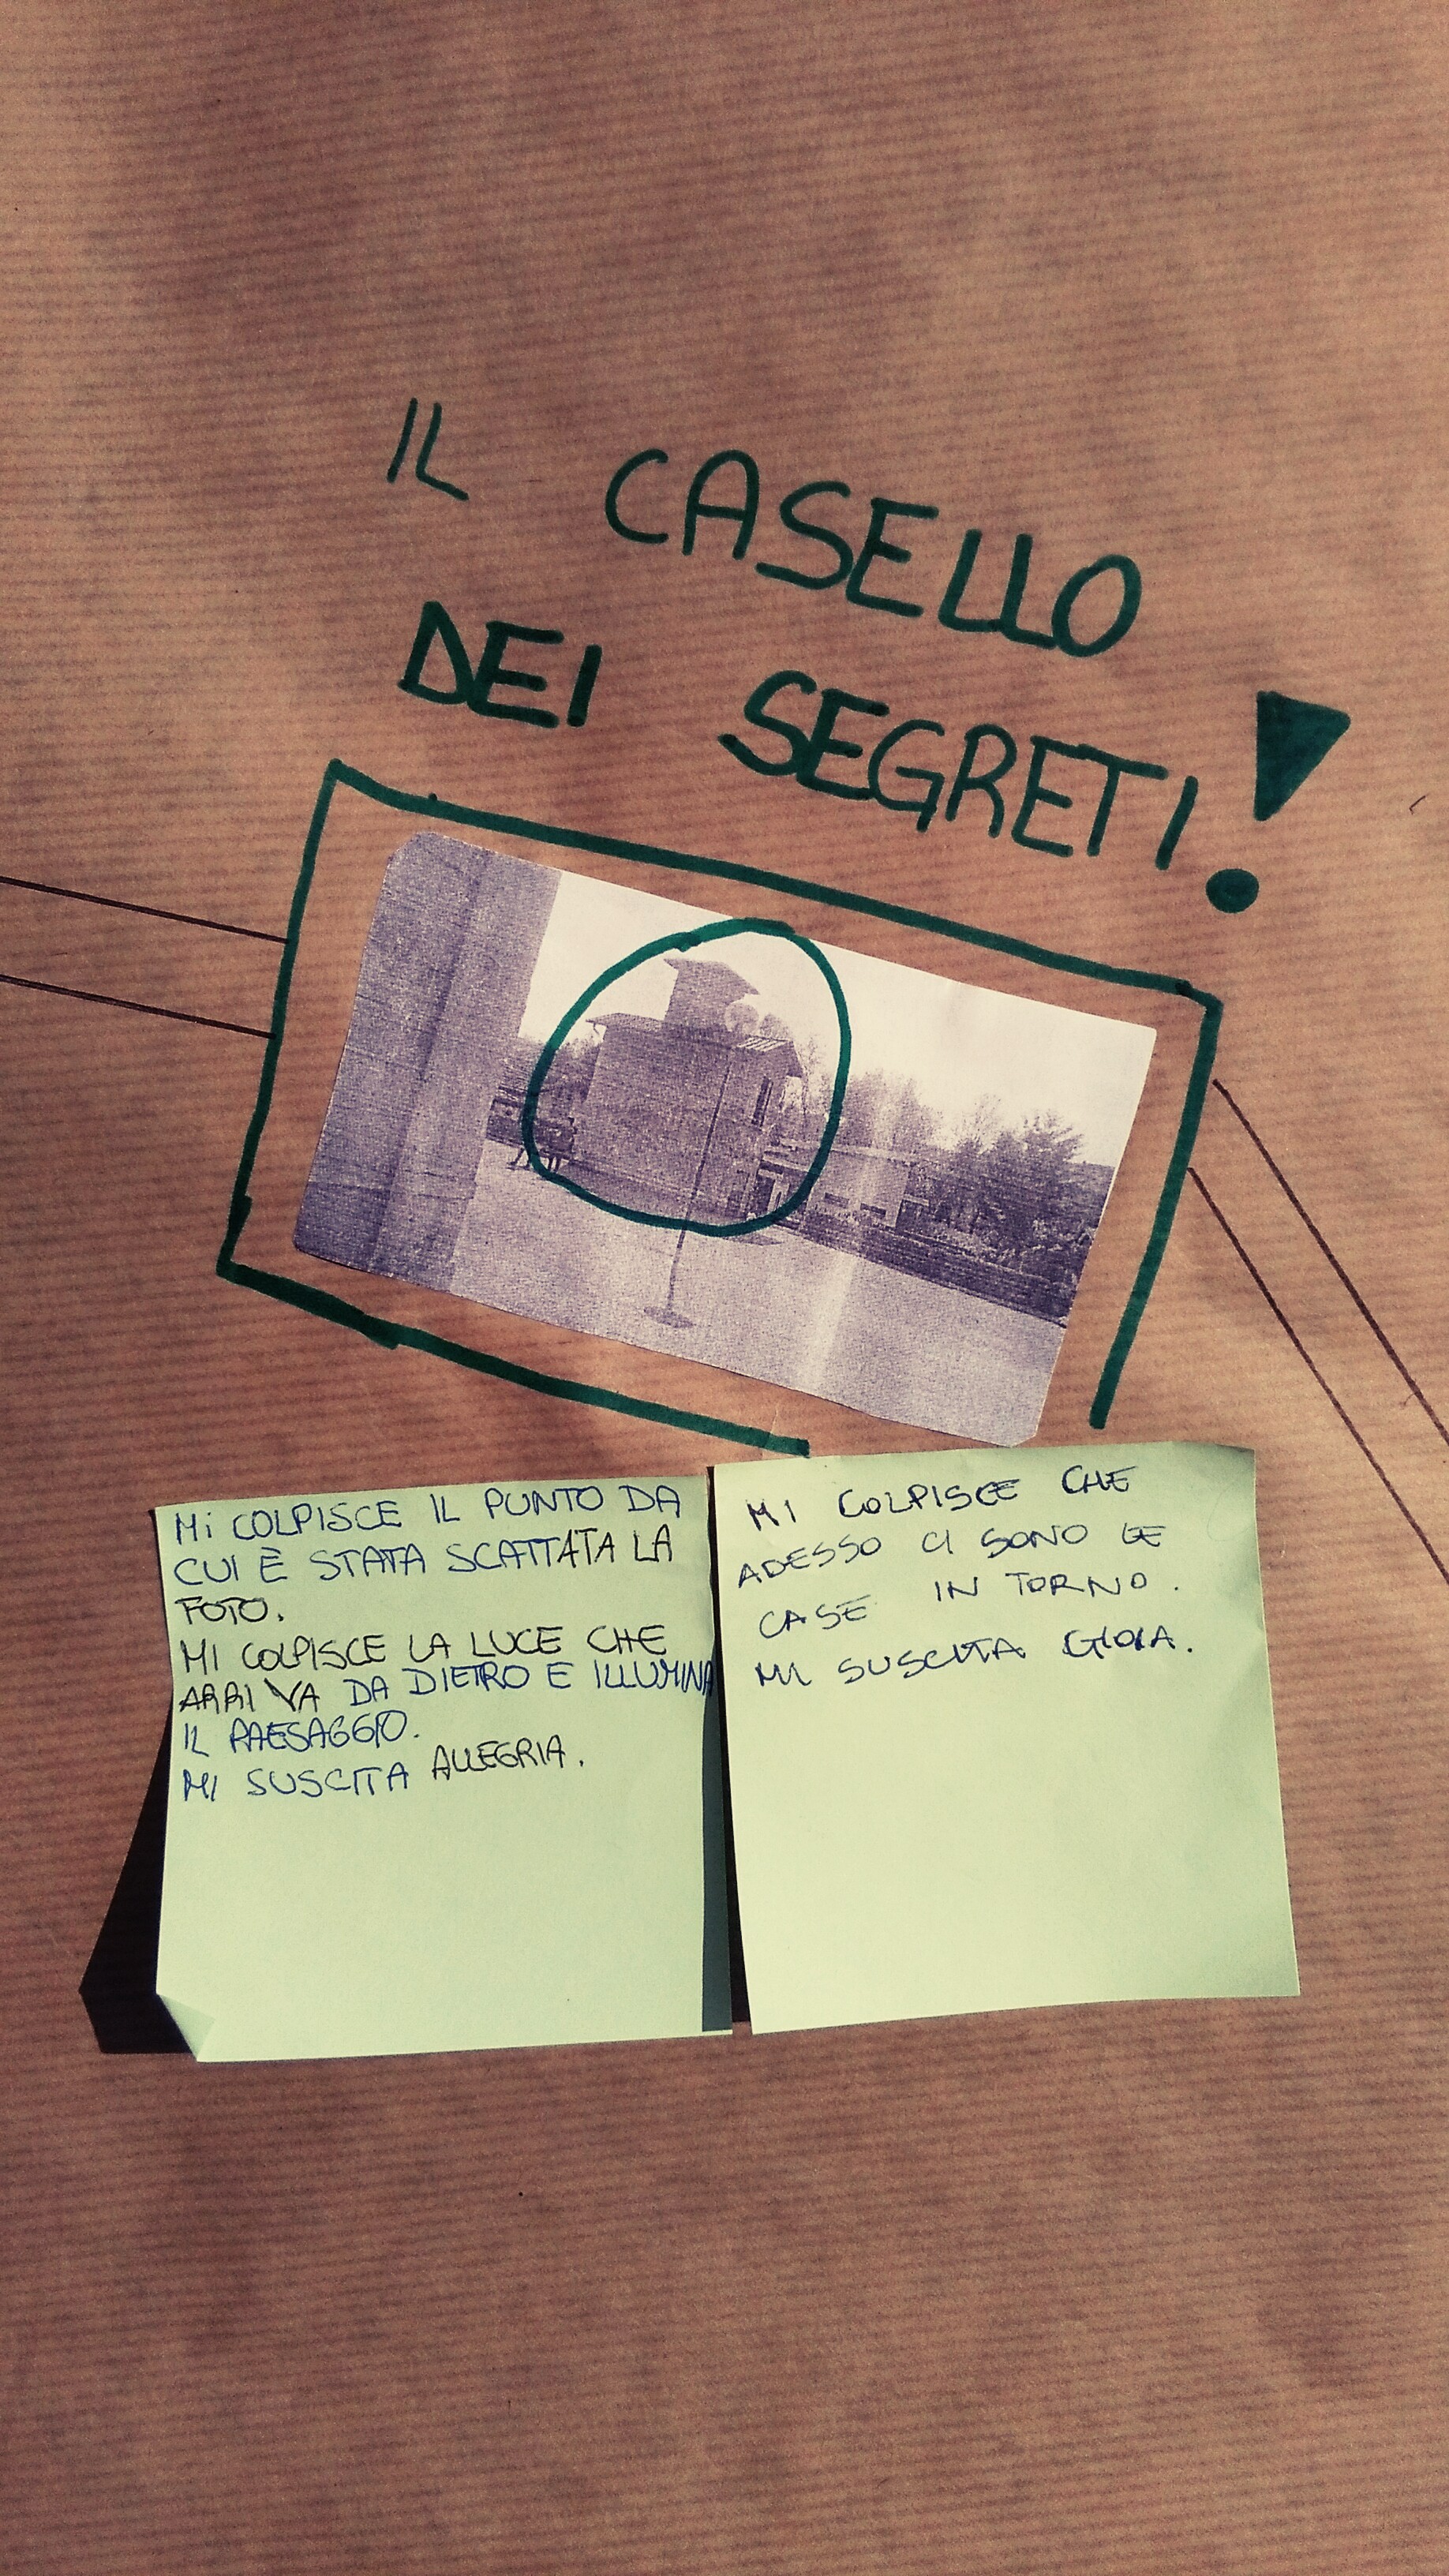 IL CASELLO
DEI SEGRETI!
Mi COLPISCE IL PUNTO DA
CUI È STATA SCATTATA LA
FOTO.
MI COLPISCE LA LUCE CHE
ARRIVA DA DIETRO E ILLUMINA
IL PAESAGGIO.
MI SUSCITA ALLEGRIA.
MI COLPISCE CHE
ADESSO CI SONO LE
CASE IN TORNO.
MI SUSCITA GIOIA.